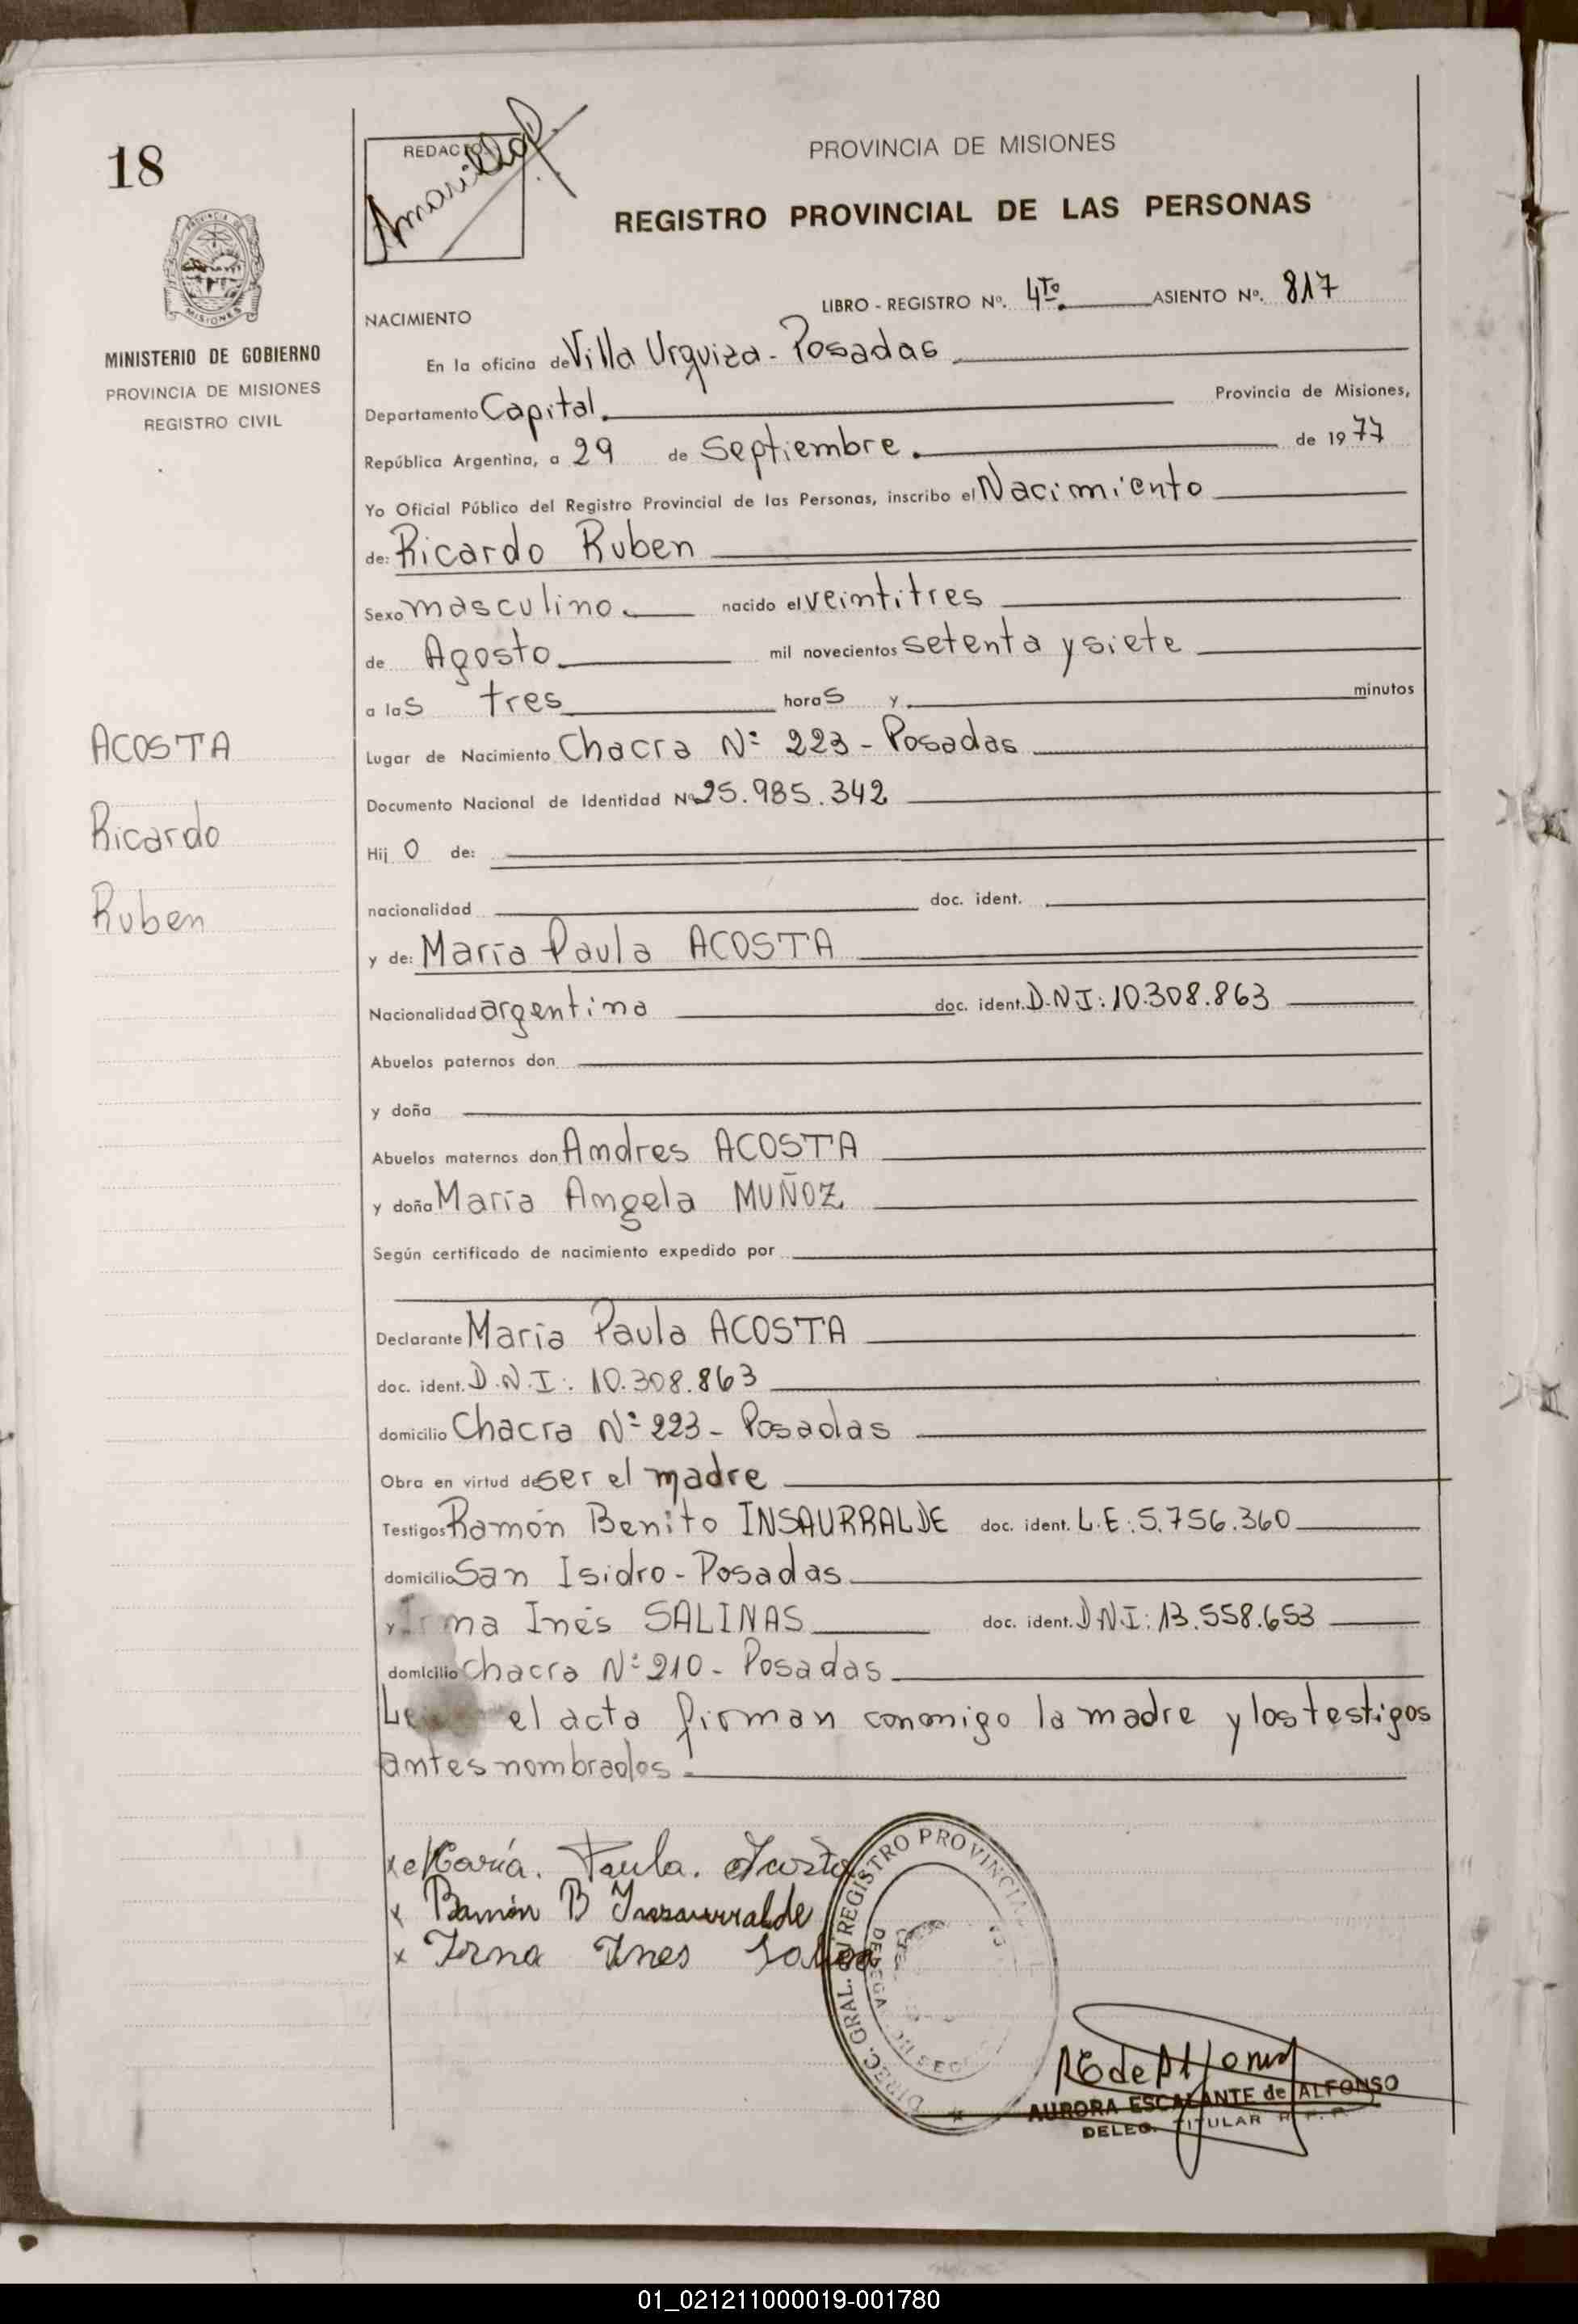 18
REDACTOR
PROVINCIA DE MISIONES
REGISTRO PROVINCIAL DE LAS PERSONAS
PROVINCIA DE
MISIONES
MINISTERIO DE GOBIERNO
PROVINCIA DE MISIONES
REGISTRO CIVIL
NACIMIENTO
LIBRO - REGISTRO Nº. 4To. ASIENTO Nº. 817
En la oficina de Villa Urquiza - Posadas
Departamento Capital. Provincia de Misiones,
República Argentina, a 29 de Septiembre. de 1977
Yo Oficial Público del Registro Provincial de las Personas, inscribo el Nacimiento
de: Ricardo Ruben
Sexo masculino. nacido el veintitres
de Agosto. mil novecientos setenta y siete
a las tres horas y minutos
Lugar de Nacimiento Chacra Nº 223 - Posadas
Documento Nacional de Identidad Nº 25.985.342
Hijo de:
nacionalidad doc. ident.
y de: María Paula ACOSTA
Nacionalidad argentina doc. ident. D.N.I: 10.308.863
Abuelos paternos don
y doña
Abuelos maternos don Andres ACOSTA
y doña María Angela MUÑOZ
Según certificado de nacimiento expedido por
Declarante María Paula ACOSTA
doc. ident. D.N.I: 10.308.863
domicilio Chacra Nº 223 - Posadas
Obra en virtud de ser el madre
Testigos Ramón Benito INSAURRALDE doc. ident. L.E: 5.756.360
domicilio San Isidro - Posadas
y Irma Inés SALINAS doc. ident. D.N.I: 13.558.653
domicilio Chacra Nº 210 - Posadas
el acta firman conmigo la madre y los testigos
antes nombrados.
ACOSTA
Ricardo
Ruben
x María. Paula. Acosta
x Ramón B Insaurralde
x Irma Ines
DIREC. GRAL. REGISTRO PROVINCIAL
AURORA ESCALANTE de ALFONSO
DELEG. TITULAR R. P. P.
01_021211000019-001780